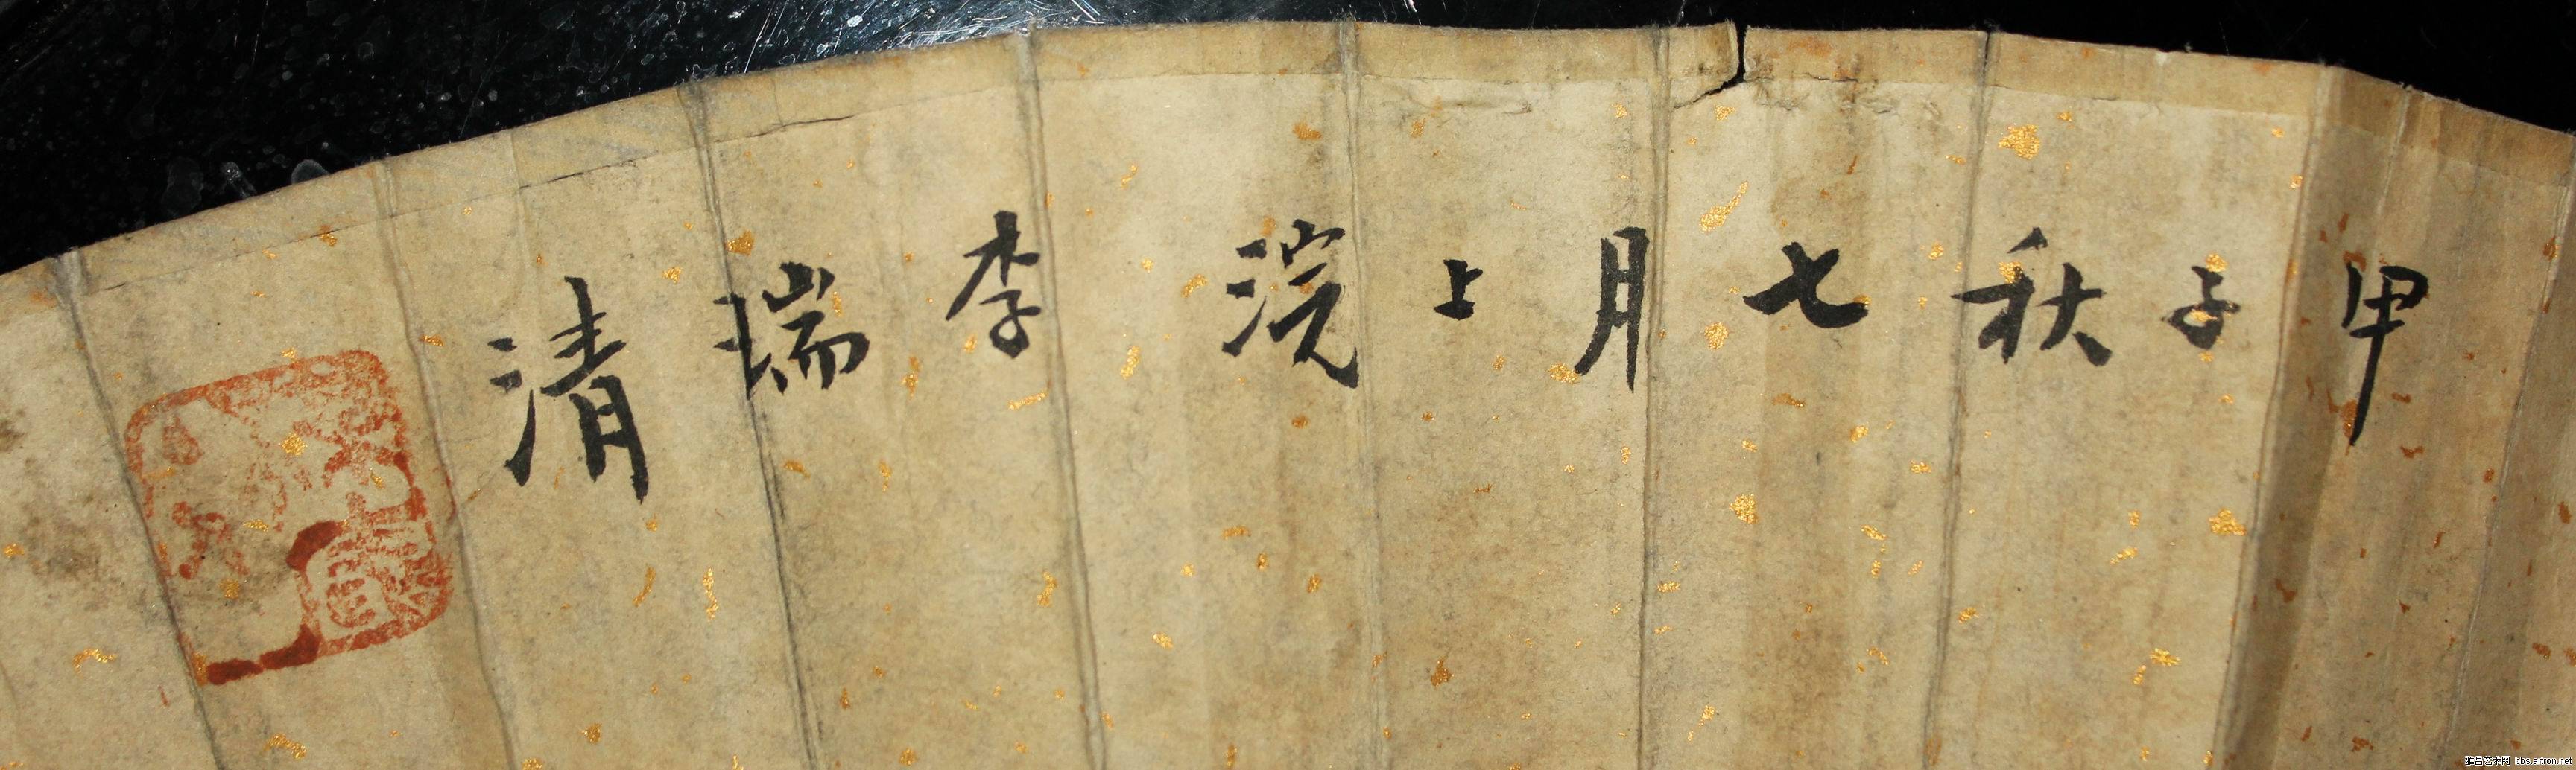 甲子秋七月上浣李瑞清
雅昌艺术网 bbs.artron.net